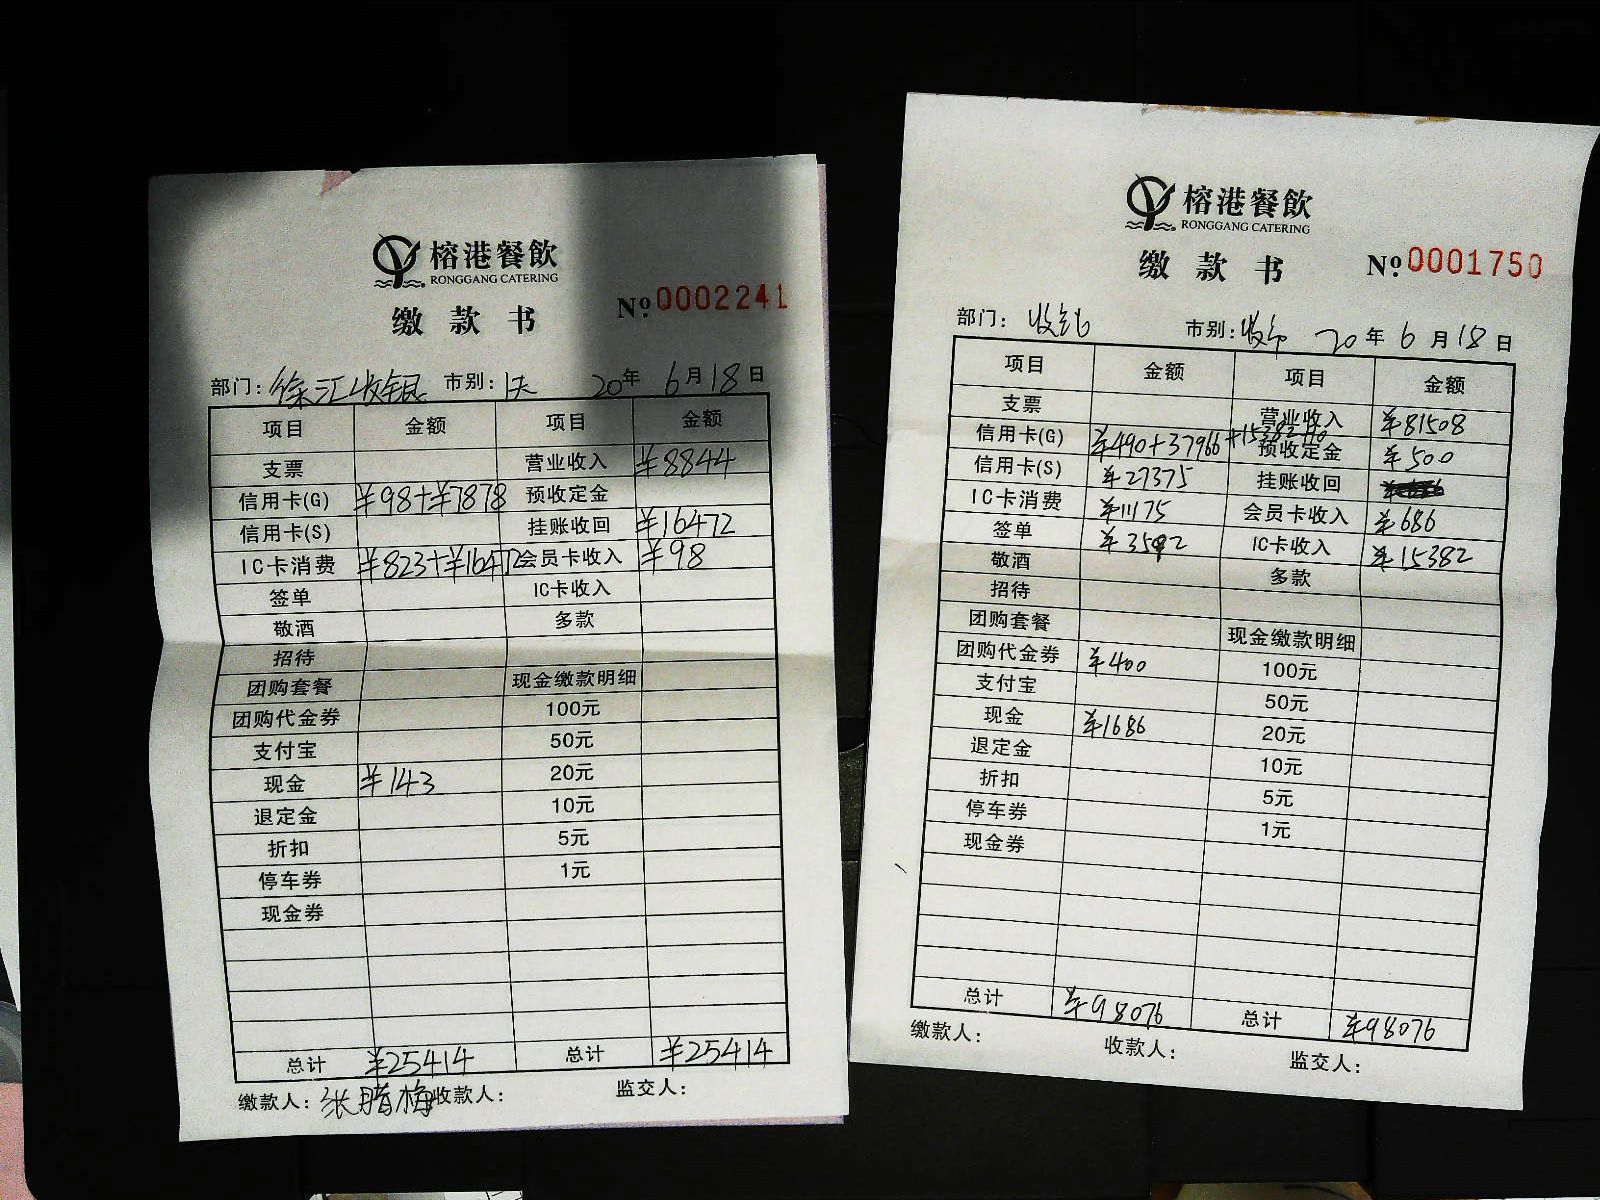 榕港餐飲
RONGGANG CATERING
缴款书
№ 0002241
部门：徐汇收银 市别：1天 20年6月18日
项目 金额 项目 金额
支票 营业收入 ¥8844
信用卡(G) ¥98+¥7878 预收定金
信用卡(S) 挂账收回 ¥16472
IC卡消费 ¥823+¥16472 会员卡收入 ¥98
签单 IC卡收入
敬酒 多款
招待
团购套餐 现金缴款明细
团购代金券 100元
支付宝 50元
现金 ¥143 20元
退定金 10元
折扣 5元
停车券 1元
现金券
总计 ¥25414 总计 ¥25414
缴款人：张腊梅 收款人： 监交人：
榕港餐飲
RONGGANG CATERING
缴款书
№ 0001750
部门： 市别： 20年6月18日
项目 金额 项目 金额
支票 营业收入 ¥81508
信用卡(G) ¥490+37966+15382 预收定金 ¥500
信用卡(S) ¥27375 挂账收回
IC卡消费 ¥11175 会员卡收入 ¥686
签单 ¥3592 IC卡收入 ¥15382
敬酒 多款
招待
团购套餐 现金缴款明细
团购代金券 ¥400 100元
支付宝 50元
现金 ¥1686 20元
退定金 10元
折扣 5元
停车券 1元
现金券
总计 ¥98076 总计 ¥98076
缴款人： 收款人： 监交人：